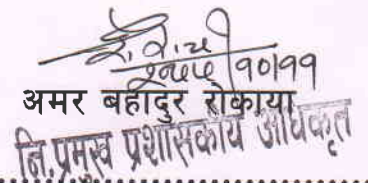 २०७५।१०।११
अमर बहादुर रोकाया
नि.प्रमुख प्रशासकीय अधिकृत